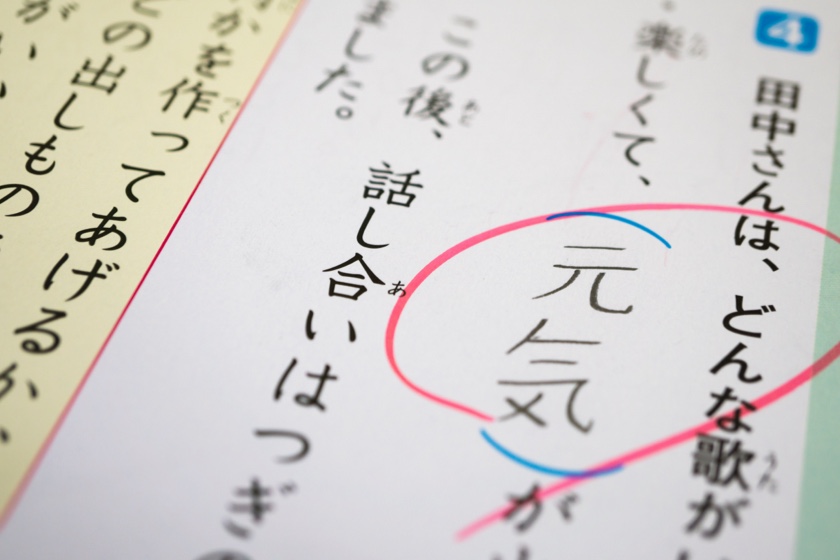 4 田中さんは、どんな歌が
うた
楽しくて、元気が
この後、話し合いはつぎの
あと
あ
ました。
かを作ってあげるか、
つく
の出しもの
が